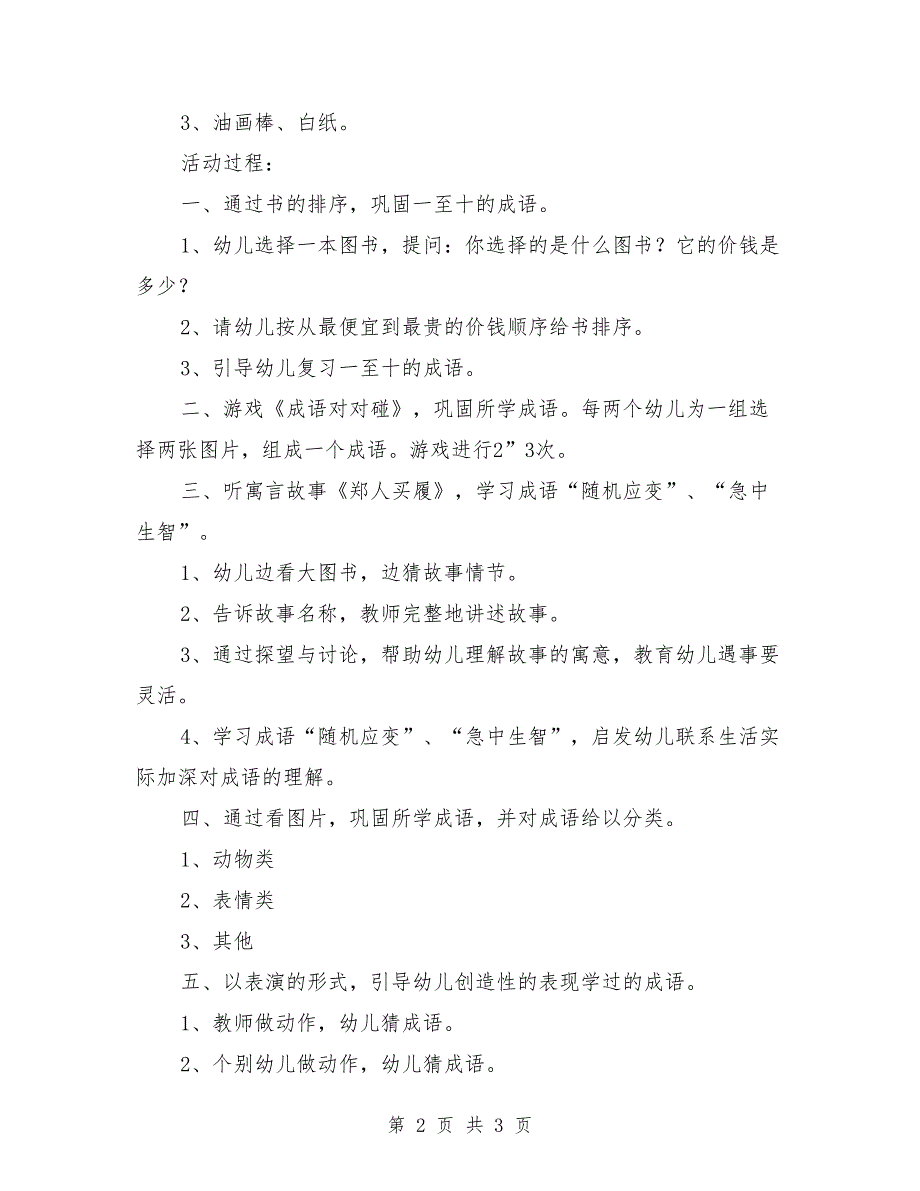 3、油画棒、白纸。
活动过程：
一、通过书的排序，巩固一至十的成语。
1、幼儿选择一本图书，提问：你选择的是什么图书？它的价钱是
多少？
2、请幼儿按从最便宜到最贵的价钱顺序给书排序。
3、引导幼儿复习一至十的成语。
二、游戏《成语对对碰》，巩固所学成语。每两个幼儿为一组选
择两张图片，组成一个成语。游戏进行2”3次。
三、听寓言故事《郑人买履》，学习成语“随机应变”、“急中
生智”。
1、幼儿边看大图书，边猜故事情节。
2、告诉故事名称，教师完整地讲述故事。
3、通过探望与讨论，帮助幼儿理解故事的寓意，教育幼儿遇事要
灵活。
4、学习成语“随机应变”、“急中生智”，启发幼儿联系生活实
际加深对成语的理解。
四、通过看图片，巩固所学成语，并对成语给以分类。
1、动物类
2、表情类
3、其他
五、以表演的形式，引导幼儿创造性的表现学过的成语。
1、教师做动作，幼儿猜成语。
2、个别幼儿做动作，幼儿猜成语。
第 2 页 共 3 页